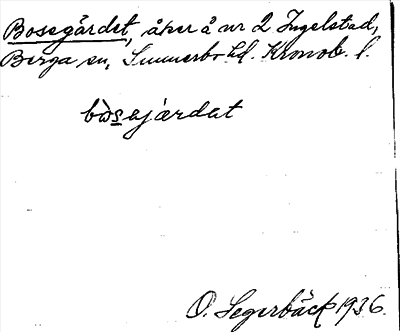 Bosegärdet, åker å nr 2 Ingelstad,
Berga sn, Sunnerbo hd. Kronob. l.
bòsɐjærdat
O. Segerbäck 1936.